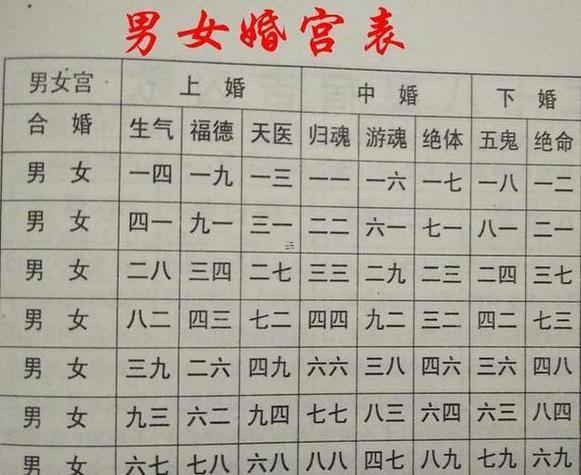 男女婚宫表
男女宫 上 婚 中 婚 下 婚
合 婚 生气 福德 天医 归魂 游魂 绝体 五鬼 绝命
男 女 一四 一九 一三 一一 一六 一七 一八 一二
男 女 四一 九一 三一 二二 六一 七一 八一 二一
男 女 二八 三四 二七 三三 二九 二三 二四 三七
男 女 八二 四三 七二 四四 九二 三二 四二 七三
男 女 三九 二六 四九 六六 三八 四六 三六 四八
男 女 九三 六二 九四 七七 八三 六四 六三 八四
男 女 六七 七八 六八 八八 四七 八九 七九 六九